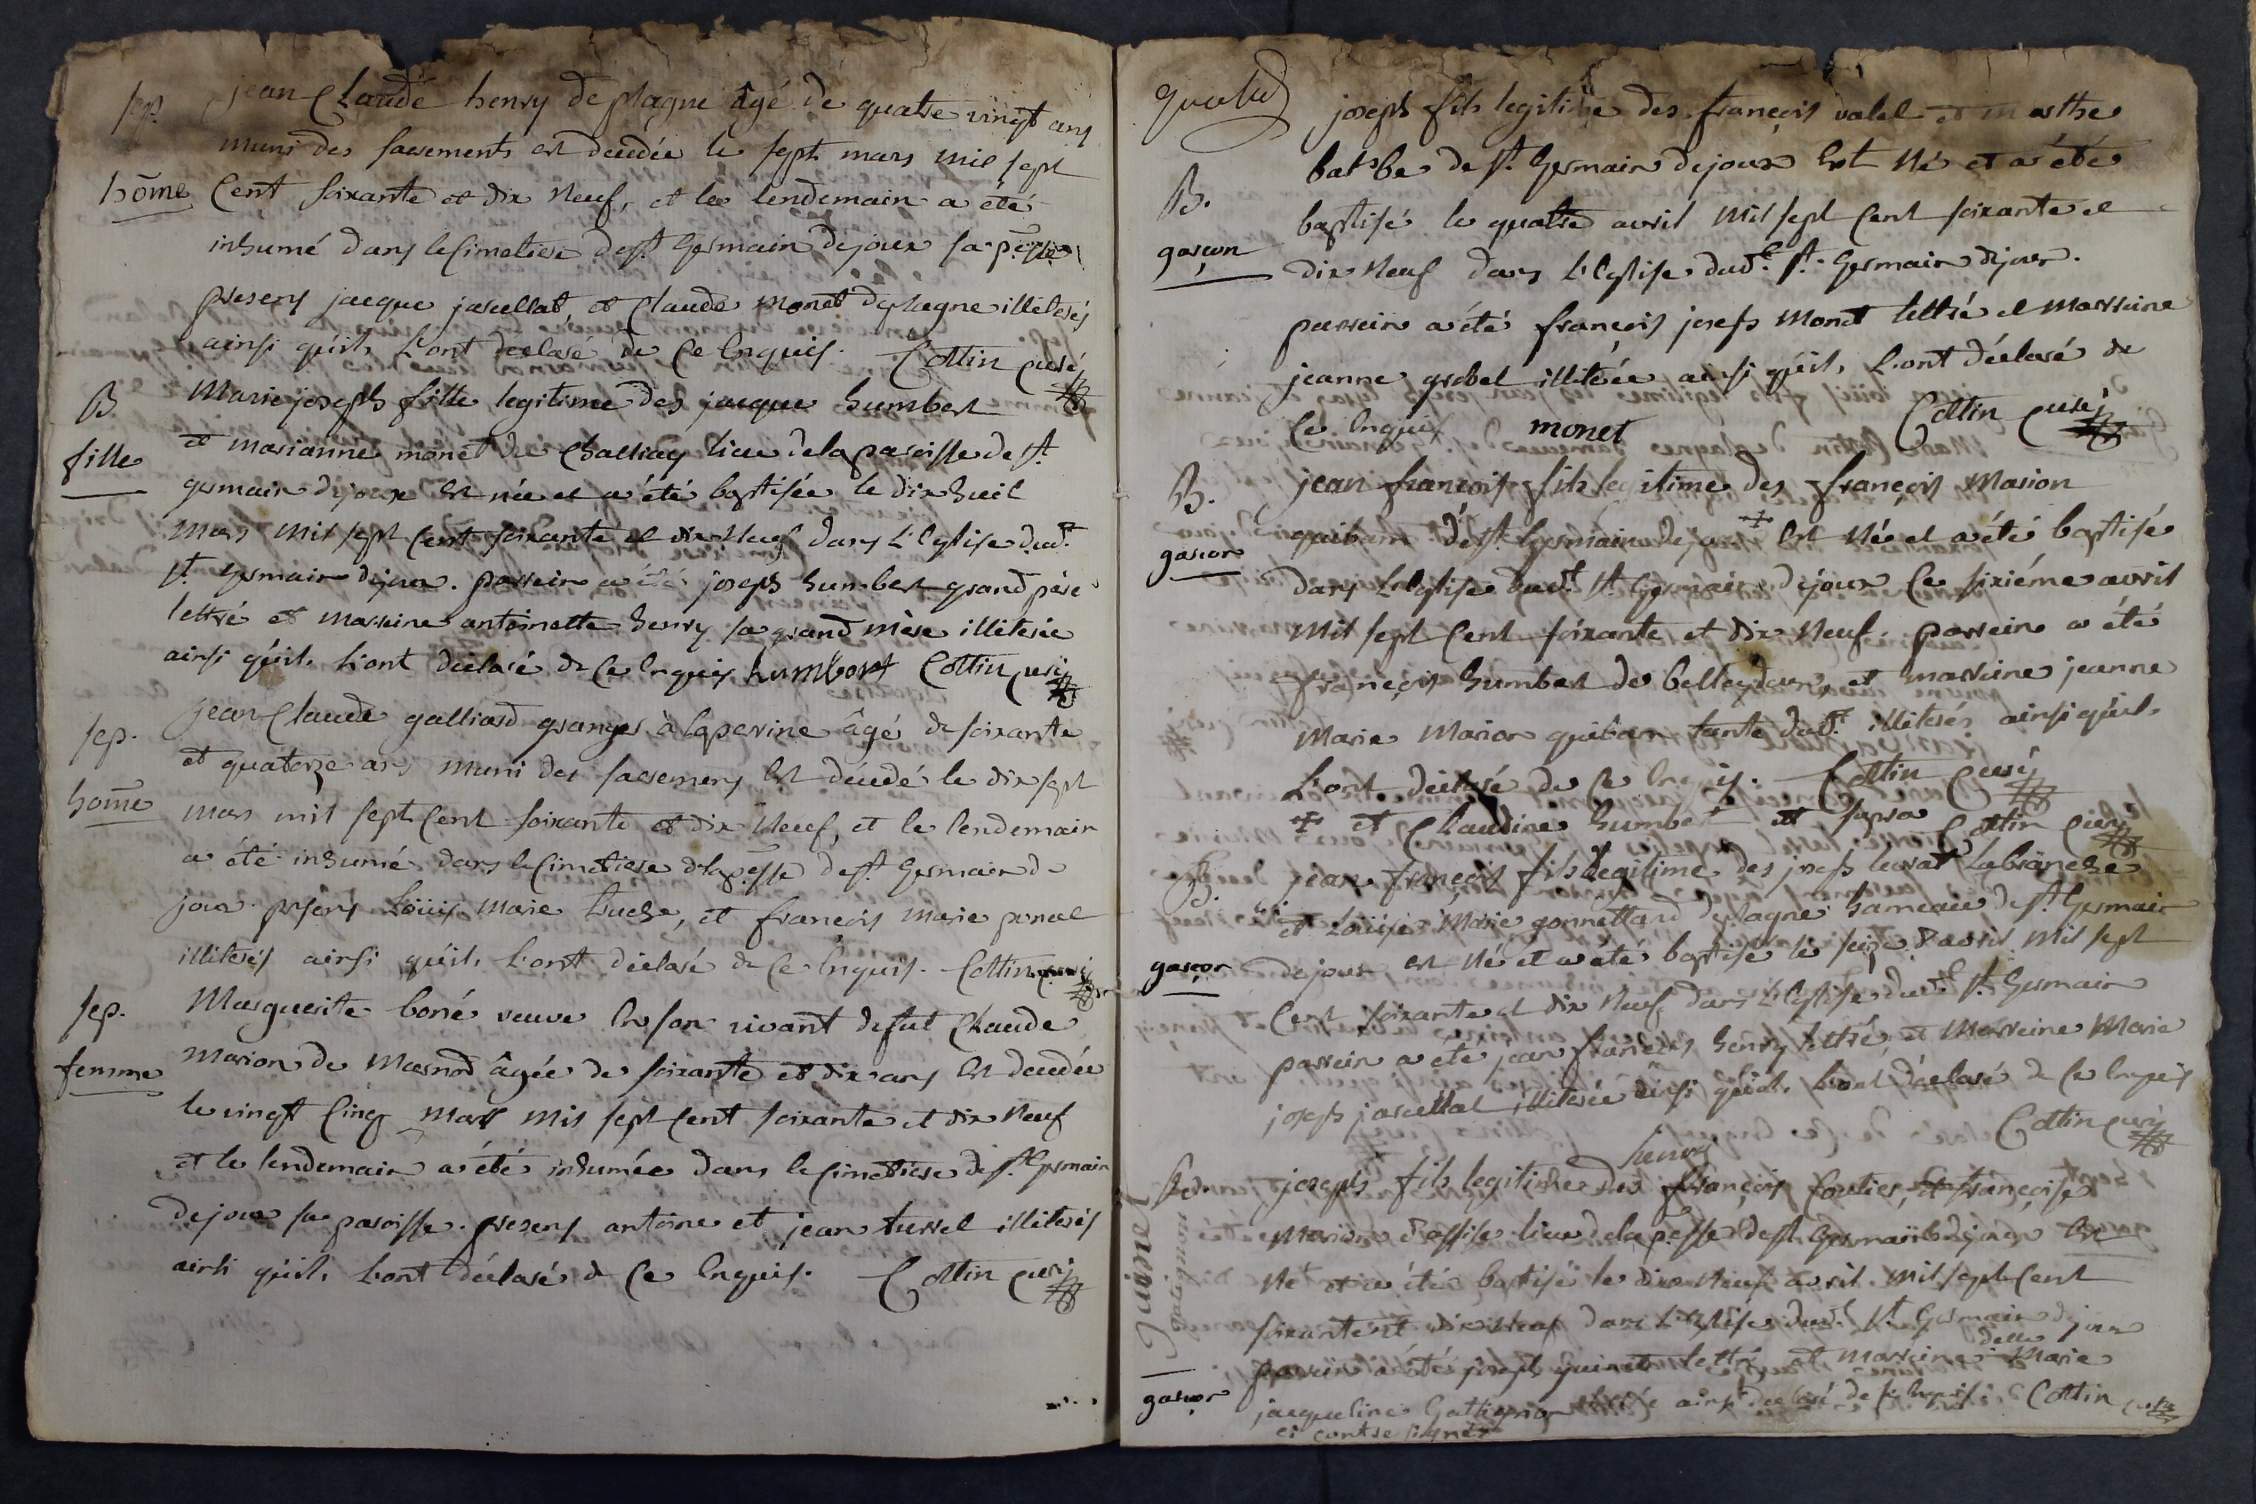 sep.
home
jean Claude henry de plagne âgé de quatre vingt ans
muni des sacrements est decedée le sept mars mil sept
Cent soixante et dix neuf, et le lendemain a été
inhumé dans le Cimetiere de st. Germain dejoux sa p.sse
presens jacque jascullat, et Claude monet de plagne illiterés
ainsi qu'ils L'ont declaré de Ce Enquis. Cottin curé
B
fille
Marie joseph fille legitime des jacque humbert
et marianne monet de Challiay lieu de la paroisse de st.
germain dejoux Est née et a été baptisée le dix huit
mars mil sept Cent soixante et dix neuf dans L'Eglise dud.t
st. germain dejoux. parrein a été joseph humbert grand pére
lettré et marreine antoinette henry sa grand mère illiterée
ainsi qu'ils L'ont déclaré de Ce Enquis humbert Cottin curé
sep.
home
jean Claude galliard granger à laperine âgé de soixante
et quatorze ans muni des sacremens Est décédé le dix sept
mars mil sept Cent soixante et dix neuf, et le lendemain
a été inhumé dans le Cimetiere de la p.sse de st. Germain de
joux. presens Loüis marie tuche, et françois marie
illiterés ainsi qu'ils L'ont déclaré de Ce Enquis. Cottin curé
sep.
femme
Marguerite boné veuve En son vivant de fut Claude
marion de marnod âgée de soixante et dix ans Est decedée
le vingt Cinq mars mil sept Cent soixante et dix neuf
et le lendemain a été inhumée dans le Cimetiere de st. Germain
dejoux sa paroisse. presens antoine et jean turrel illiterés
ainsi qu'ils L'ont déclaré de Ce Enquis. Cottin curé
B.
garçon
joseph fils legitime des françois valel et marthe
de st. Germain dejoux Est Né et a été
baptisé le quatre avril mil sept Cent soixante et
dix Neuf dans L'Eglise dud.t st. Germain dejoux.
parrein a été françois joseph monet lettré et marreine
jeanne grobel illiterée ainsi qu'ils L'ont déclaré de
Ce Enquis monet Cottin curé
B.
garçon
jean françois fils legitime des françois marion
guibam de st. Germain dejoux + Est Né et a été baptisé
dans L'Eglise dud.t st. Germain dejoux Ce sixiéme avril
mil sept Cent soixante et dix Neuf. parrein a été
françois humbert de belleydoux, et marreine jeanne
marie marion guibam tante dud.t illiterés ainsi qu'ils
L'ont declaré de Ce Enquis. Cottin Curé
+ et Claudine humbert supra Cottin Curé
B.
garçon
jean françois fils legitime des joseph Labranche
et Loüise marie gonnettard de plagne hameau de st. Germain
dejoux est Né et a été baptisé le seize avril mil sept
Cent soixante et dix Neuf, dans L'Eglise dud.t st. Germain
parrein a été jean françois henry lettré, et marreine marie
joseph jascullat illiterée ainsi qu'ils L'ont déclaré de Ce Enquis
henry Cottin curé
B.
joseph fils legitime des françois et françoise
marion lieu de la p.sse de st. Germain dejoux Est
Né et a été baptisé le dix Neuf avril mil sept Cent
soixante et dix Neuf dans L'Eglise dud.t st. Germain dejoux
delle
parrein a été joseph guinet lettré et marreine Marie
garçon
jacqueline ainsi declaré de Ce Enquis. Cottin curé
ci contre signés